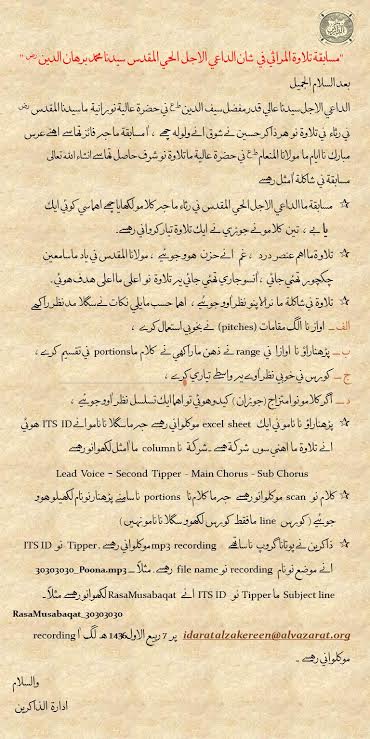 "مسابقة تلاوة المراثي في شان الداعي الاجل الحي المقدس سيدنا محمد برهان الدين رض"
بعد السلام الجميل
الداعي الاجل سيدنا عالي قدر مفضل سيف الدين طع ني حضرة عالية نورانية ما سيدنا المقدس
ني رثاء ني تلاوة نو هر ذاكر حسين نے شوق انے ولوله چھے ، اْ مسابقة ما جر فائز تھاسے اهنے عرس
مبارك نا ايام ما مولانا المنعام طع ني حضرة عالية ما تلاوة نو شرف حاصل تھاسے انشاء الله تعالى
مسابقة ني شاكلة اْمثل رهسے
★ مسابقة ما الداعي الاجل الحي المقدس ني رثاء ما جر كلامو لكھايا چھے اهما سي كوئي ايك
يا بے ، تين كلامو نے جوڑي نے ايك تلاوة تيار كرواني رهسے.
★ تلاوة ما اهم عنصر درد ، غم انے حزن هوو جوئيے ، مولانا المقدس ني ياد ما سامعين
چكچور تھئي جائي ، اْنسو جاري تھئي جائي يہ تلاوة نو اعلى ما اعلى هدف هوئي.
★ تلاوة ني شاكلة ما نرالاپنو نظر اْوو جوئيے ، اهما حسب ما يلي نكات نے سگلا مد نظر راكھے
الف ــ اواز نا الگ مقامات (pitches) نے بخوبي استعمال كرے ،
ب ــ پڑهناراؤ نا اوازا ني range نے ذهن ما راكھي نے كلام ما portions ني تقسيم كرے ،
ج ــ كورس ني خوبي نظر اْوے يہ واسطے تياري كرے ،
د ــ اگر كلامو نو امتزاج (جوڑان) كيدو هوئي تو اهما ايك تسلسل نظر اْوو جوئيے ،
★ پڑهناراؤ نا نامو ني ايك excel sheet موكلواني رهسے جر ما سگلا نا نامو انے ITS ID هوئي
انے تلاوة ما اهني سوں شركة چھے ــ شركة نا column ما اْمثل لكھوانو رهسے
Lead Voice – Second Tipper - Main Chorus - Sub Chorus
★ كلام نو scan موكلوانو رهسے جر ما كلام نا portions نا سامنے پڑهنار نو نام لكھيلو هوو
جوئيے (كورس line ما فقط كورس لكھوو سگلا نا نامو نهيں)
★ ذاكرين نے پوتانا گروپ نا ساتھے mp3 recording موكلواني رهسے. Tipper نو ITS ID
انے موضع نو نام recording نو file name رهسے. مثلاً ــ 30303030_Poona.mp3
Subject line ما Tipper نو ITS ID انے RasaMusabaqat لكھوانو رهسے مثلاً ــ
RasaMusabaqat_30303030
idaratalzakereen@alvazarat.org پر 7 ربيع الاول 1436 هـ لگ اْ recording
موكلواني رهسے ــ
والسلام
ادارة الذاكرين